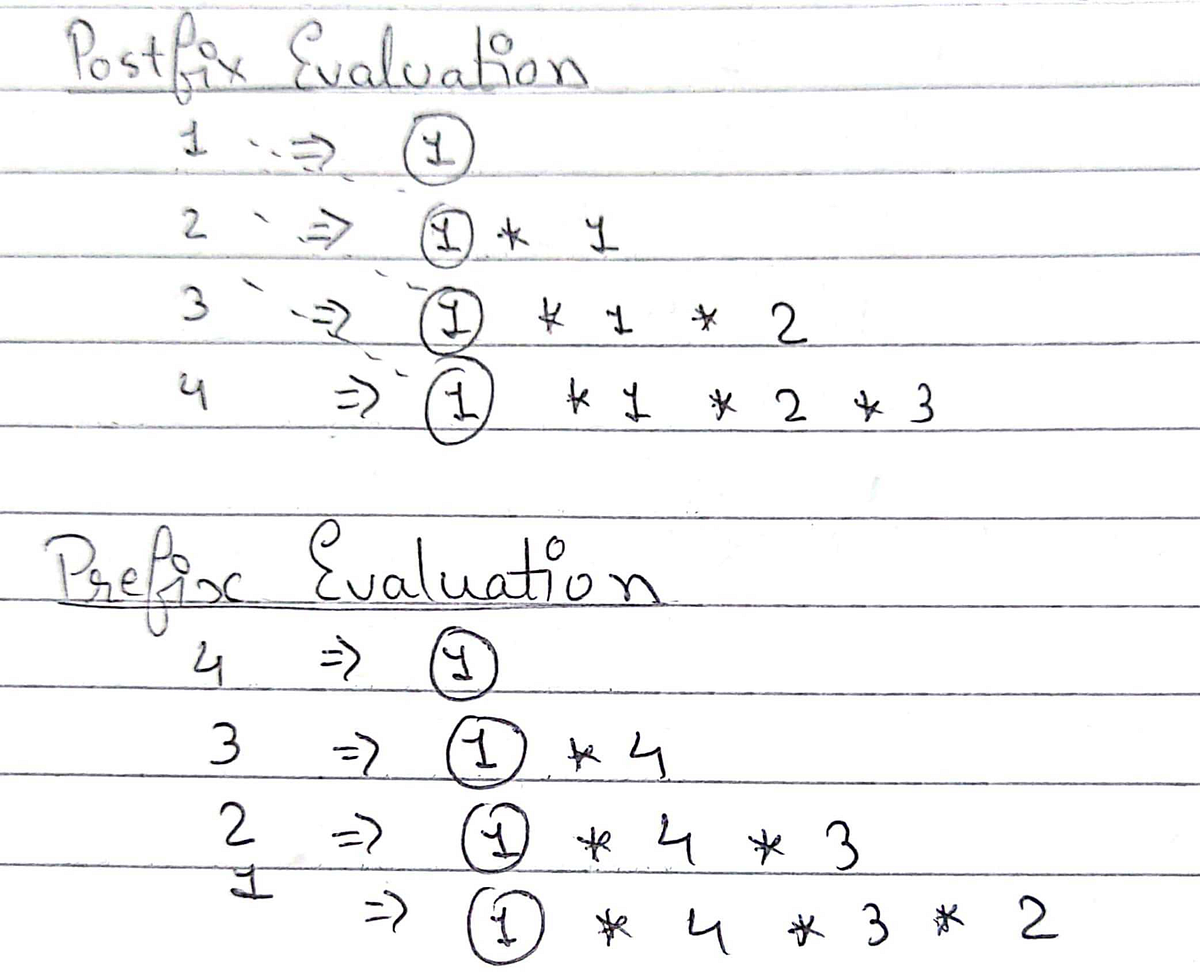 Postfix Evaluation
1 => 1
2 => 1 * 1
3 => 1 * 1 * 2
4 => 1 * 1 * 2 * 3
Prefix Evaluation
4 => 1
3 => 1 * 4
2 => 1 * 4 * 3
1 => 1 * 4 * 3 * 2